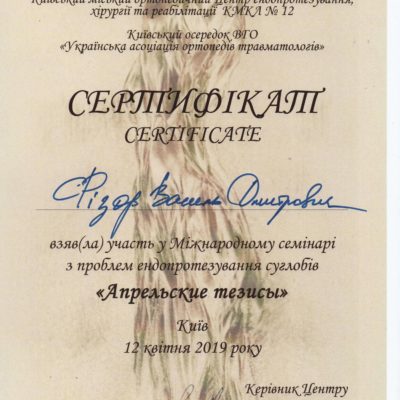 Київський міський ортопедичний Центр ендопротезування,
хірургії та реабілітації КМКЛ № 12
Київський осередок ВГО
«Українська асоціація ортопедів травматологів»
СЕРТИФІКАТ
CERTIFICATE
Фіздр Василь Дмитрович
взяв(ла) участь у Міжнародному семінарі
з проблем ендопротезування суглобів
«Апрельские тезисы»
Київ
12 квітня 2019 року
Керівник Центру